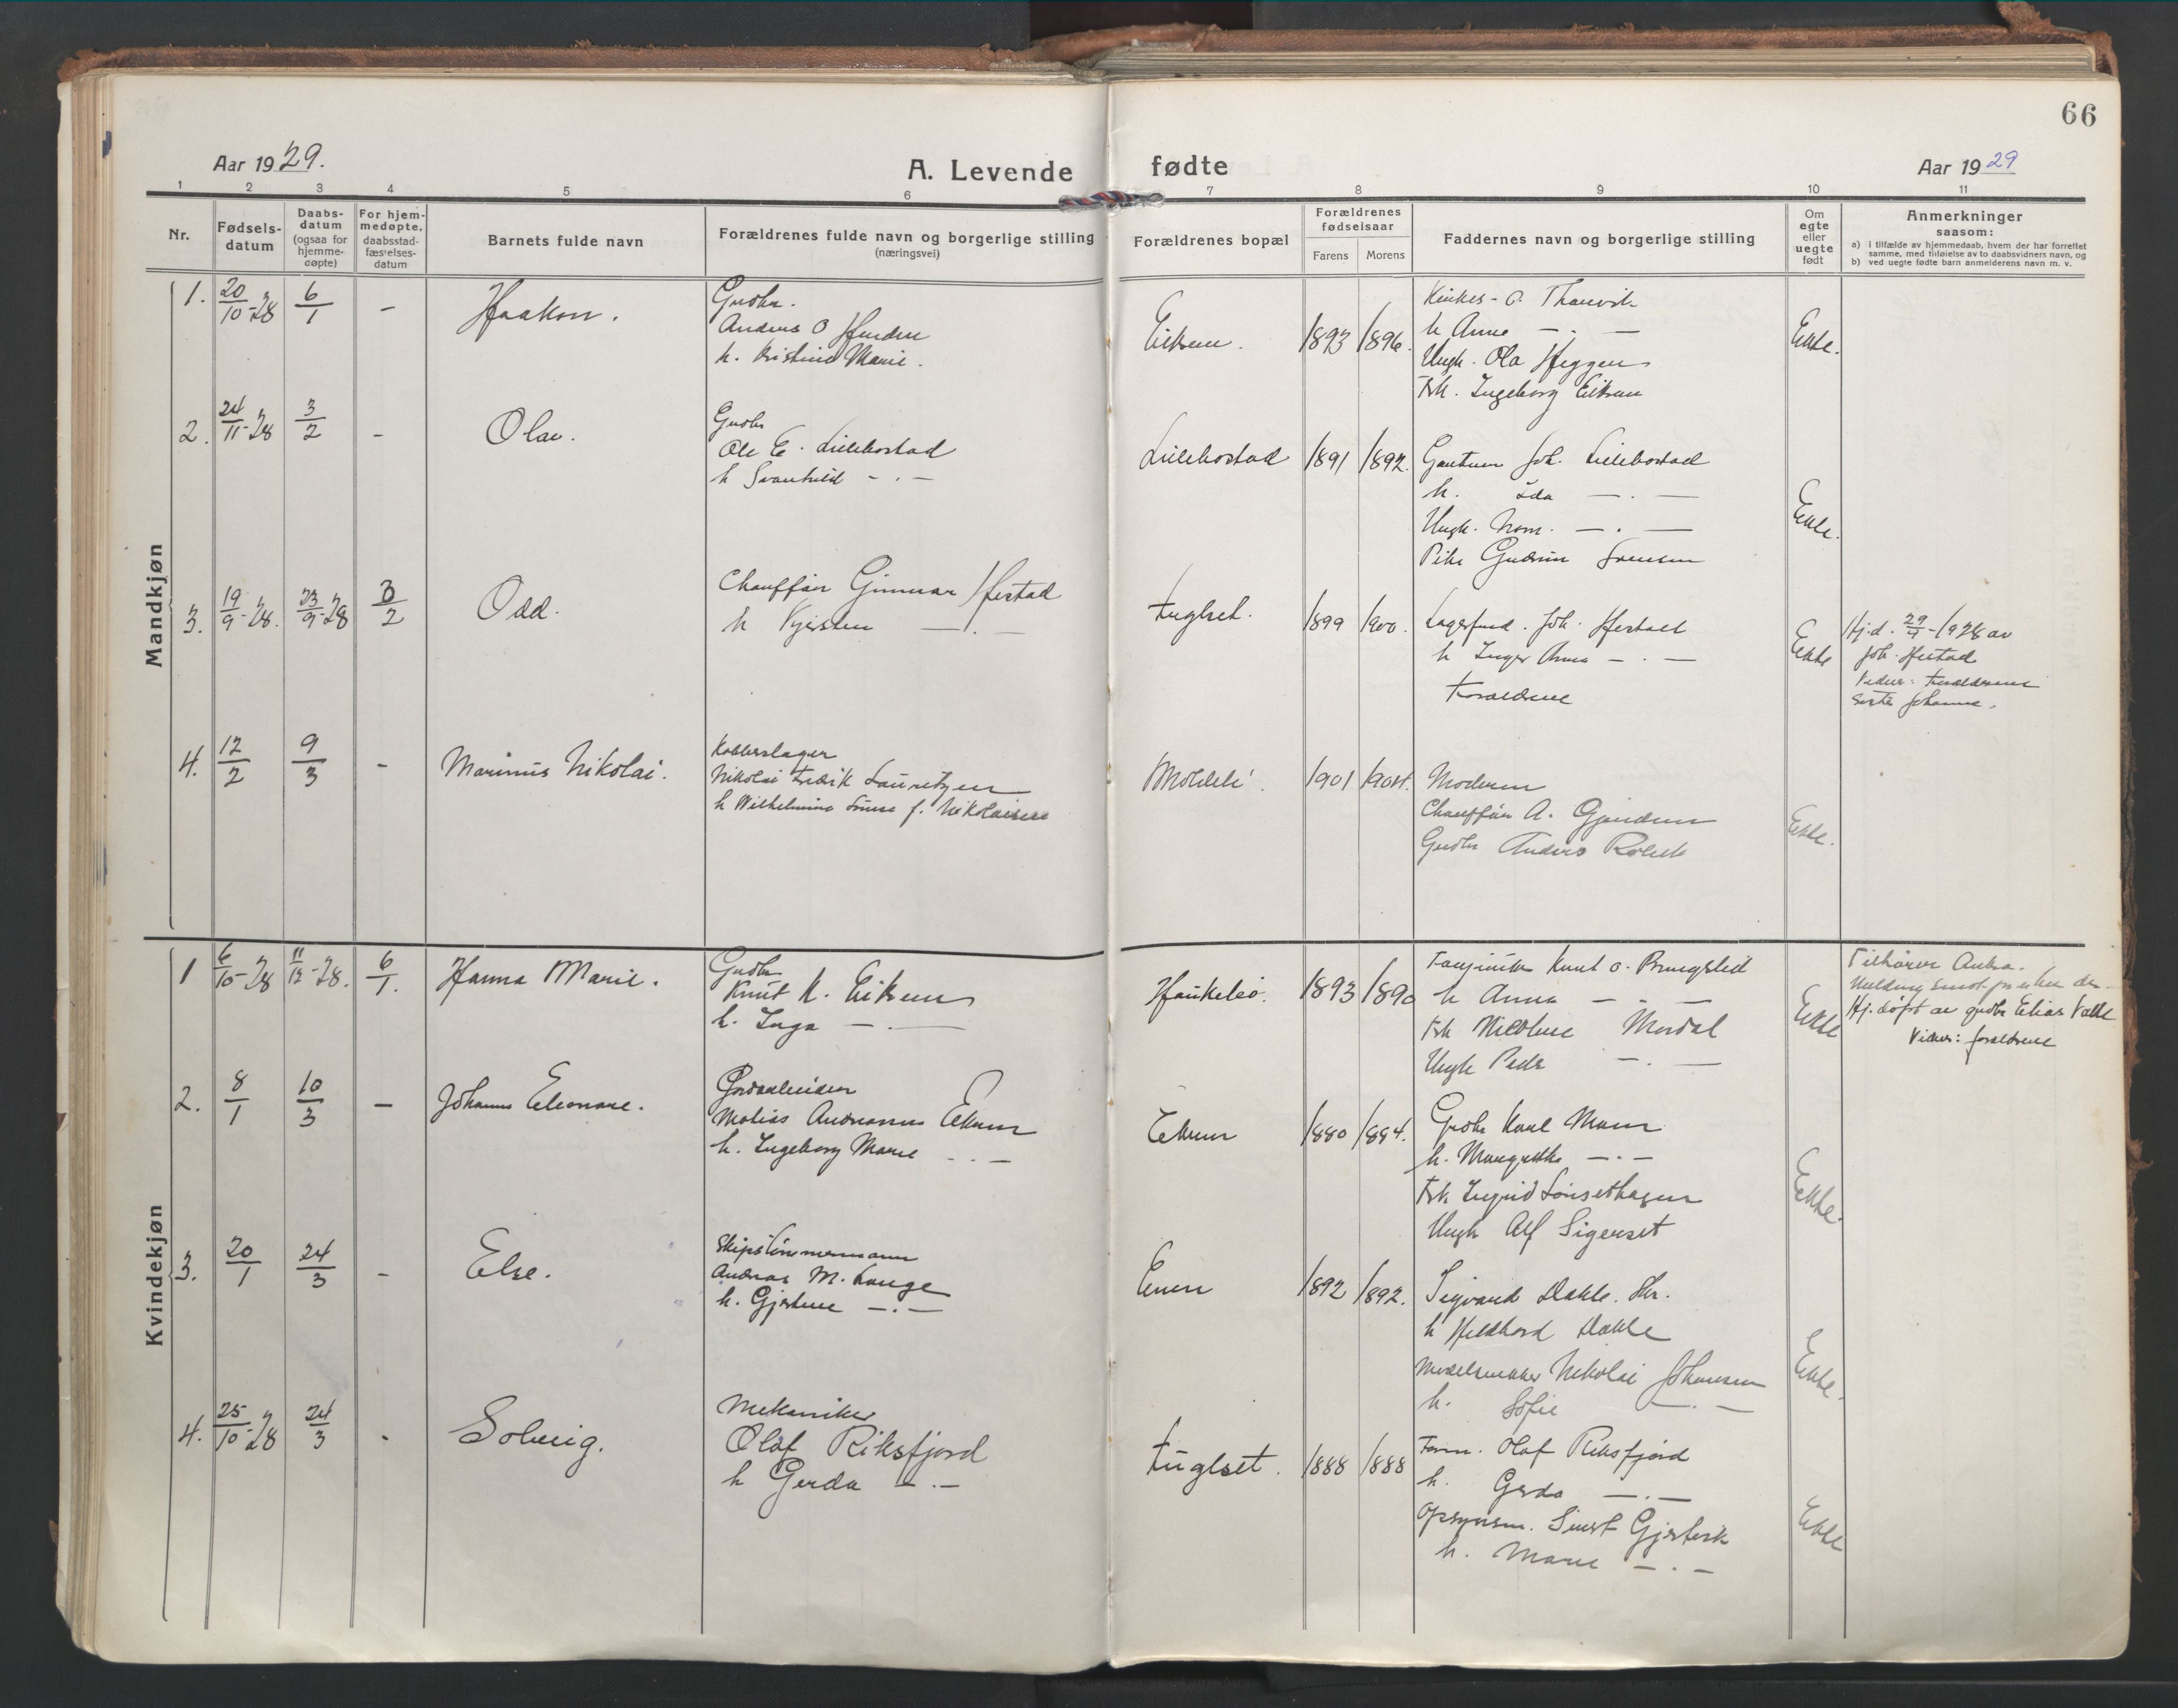 66
Aar 1929.
A. Levende fødte
Aar 1929
1 2 3 4 5 6 7 8 9 10 11
Nr.
Fødsels-
datum
Daabs-
datum
(ogsaa for
hjemme-
døpte)
For hjem-
medøpte,
daabsstad-
fæstelses-
datum
Barnets fulde navn
Forældrenes fulde navn og borgerlige stilling
(næringsvei)
Forældrenes bopæl
Forældrenes
fødselsaar
Farens Morens
Faddernes navn og borgerlige stilling
Om
egte
eller
uegte
født
Anmerkninger
saasom:
a) i tilfælde av hjemmedaab, hvem der har forrettet
samme, med tilføielse av to daabsvidners navn, og
b) ved uegte fødte barn anmelderens navn m. v.
Mandkjøn
1. 20/10-28 6/1 - Haakon.
Gudbr.
Anders O
h. Kristine Marie.
1893 1896.
h Anna — . —
Ungk. Ola Heggen
Frk. Ingeborg Eikrem
Ekte.
2. 24/11-28 3/2 - Olav.
Gudbr
Ole E. Lillebostad
h Svanhild - . -
Lillebostad 1891 1892.
Joh. Lillebostad
h. Ida — . —
Ungk. — . —
Pike Gudrun
Ekte.
3. 19/9-28. 23/9-28 3/2 Odd.
Chauffør Gunnar Hestad
h Kjersten — . —
Fuglset. 1899 1900.
Joh. Hestad
h Inger Anna — . —
Forældrene
Ekte
Hj.d. 29/9-1928 av
Joh. Hestad
Vidner: Forældrene
Johanne.
4. 12/2 9/3 - Marinus Nikolai.
Kobberslager
Nikolai Fredrik Lauretzen
h Wilhelmine f. Nikolaisen
Moldeli. 1901 1904.
Moderen
Chauffør A. Gjendem
Gudbr Anders
Ekte.
Kvindekjøn
1 6/10-28 11/12-28. 6/1. Hanna Marie.
Gudbr
Knut K. Eikrem
h. Inga — . —
Haukebø. 1893 1890
Knut O.
h Anna — . —
Frk Nicoline Mordal
Ungk Peder — . —
Ekte
Tilhører Aukra.
Hj. døpt av gudbr Elias
Vidner: forældrene
2. 8/1 10/3 — Johanne Eleonore.
Jordarbeider
Matias Andreanus Eikrem
h. Ingeborg Marie - . -
Eikrem 1880 1894.
Gudbr Karl
h. Margrethe — . —
Frk Ingrid Lønsethagen
Ungk Alf Sigerset
Ekte.
3. 20/1 24/3 - Else.
Skipstømmermann
Andreas M. Lange
h. Gjertine — . —
1892 1892.
Sigvard Dahle.
h Dahle
Modelsnekker Nikolai Johansen
h. Sofie — . —
Ekte.
4. 25/10-28 24/3 - Solveig.
Mekaniker
Olaf Riksfjord
h Gerda — . —
Fuglset. 1888 1888
Olaf Riksfjord
h. Gerda — . —
Opsynsm.
h. Marie — . —
Ekte